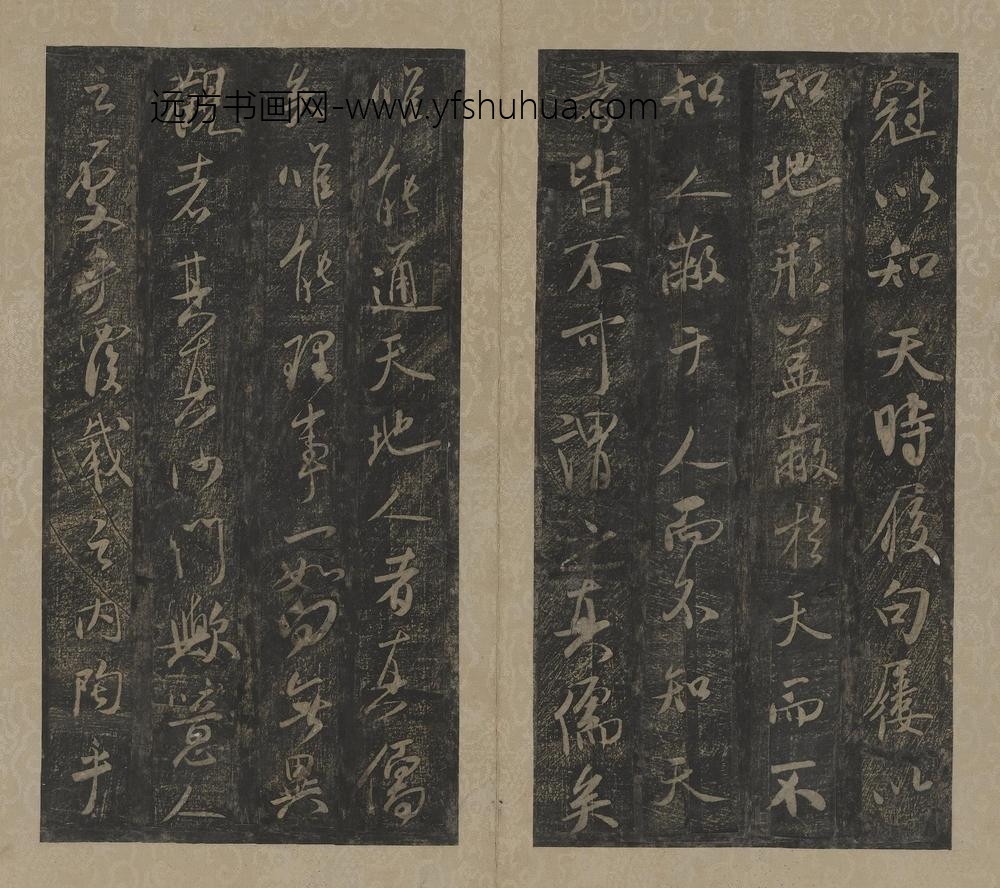 远方书画网-www.yfshuhua.com
冠以知天時履句屨以
知地形蓋蔽於天而不
知人蔽于人而不知天
者皆不可謂之真儒矣
唯能通天地人者真儒
矣唯能理事一如向無異
觀者其真沙門歟噫人
之處乎覆載之內陶乎